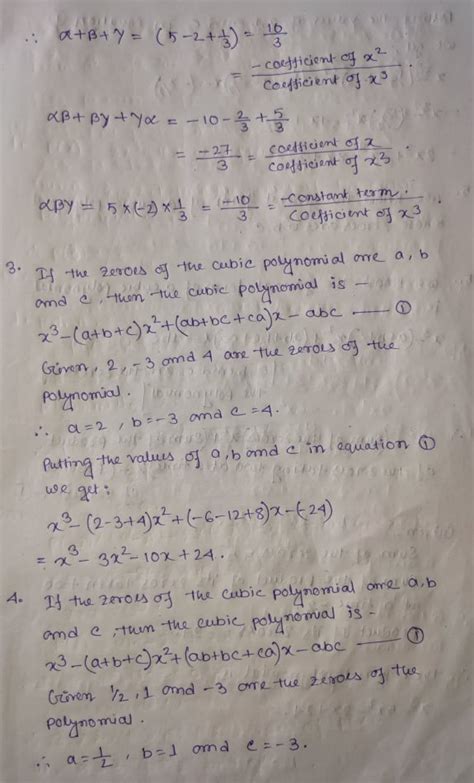 ∴ α+β+γ = (5-2+1/3) = 10/3
= -coefficient of x² / coefficient of x³ .
αβ+βγ+γα = -10-2/3+5/3
= -27/3 = coefficient of x / coefficient of x³ .
αβγ = 5×(-2)×1/3 = -10/3 = -constant term. / coefficient of x³ .
3. If the zeroes of the cubic polynomial are a, b
and c, then the cubic polynomial is -
x³-(a+b+c)x²+(ab+bc+ca)x-abc —— ①
Given, 2, -3 and 4 are the zeroes of the
polynomial.
∴ a=2, b=-3 and c=4.
Putting the values of a, b and c in equation ①
we get:
x³-(2-3+4)x²+(-6-12+8)x-(-24)
= x³-3x²-10x+24.
4. If the zeroes of the cubic polynomial are a, b
and c, then the cubic polynomial is -
x³-(a+b+c)x²+(ab+bc+ca)x-abc —— ①
Given 1/2, 1 and -3 are the zeroes of the
polynomial.
∴ a=1/2, b=1 and c=-3.